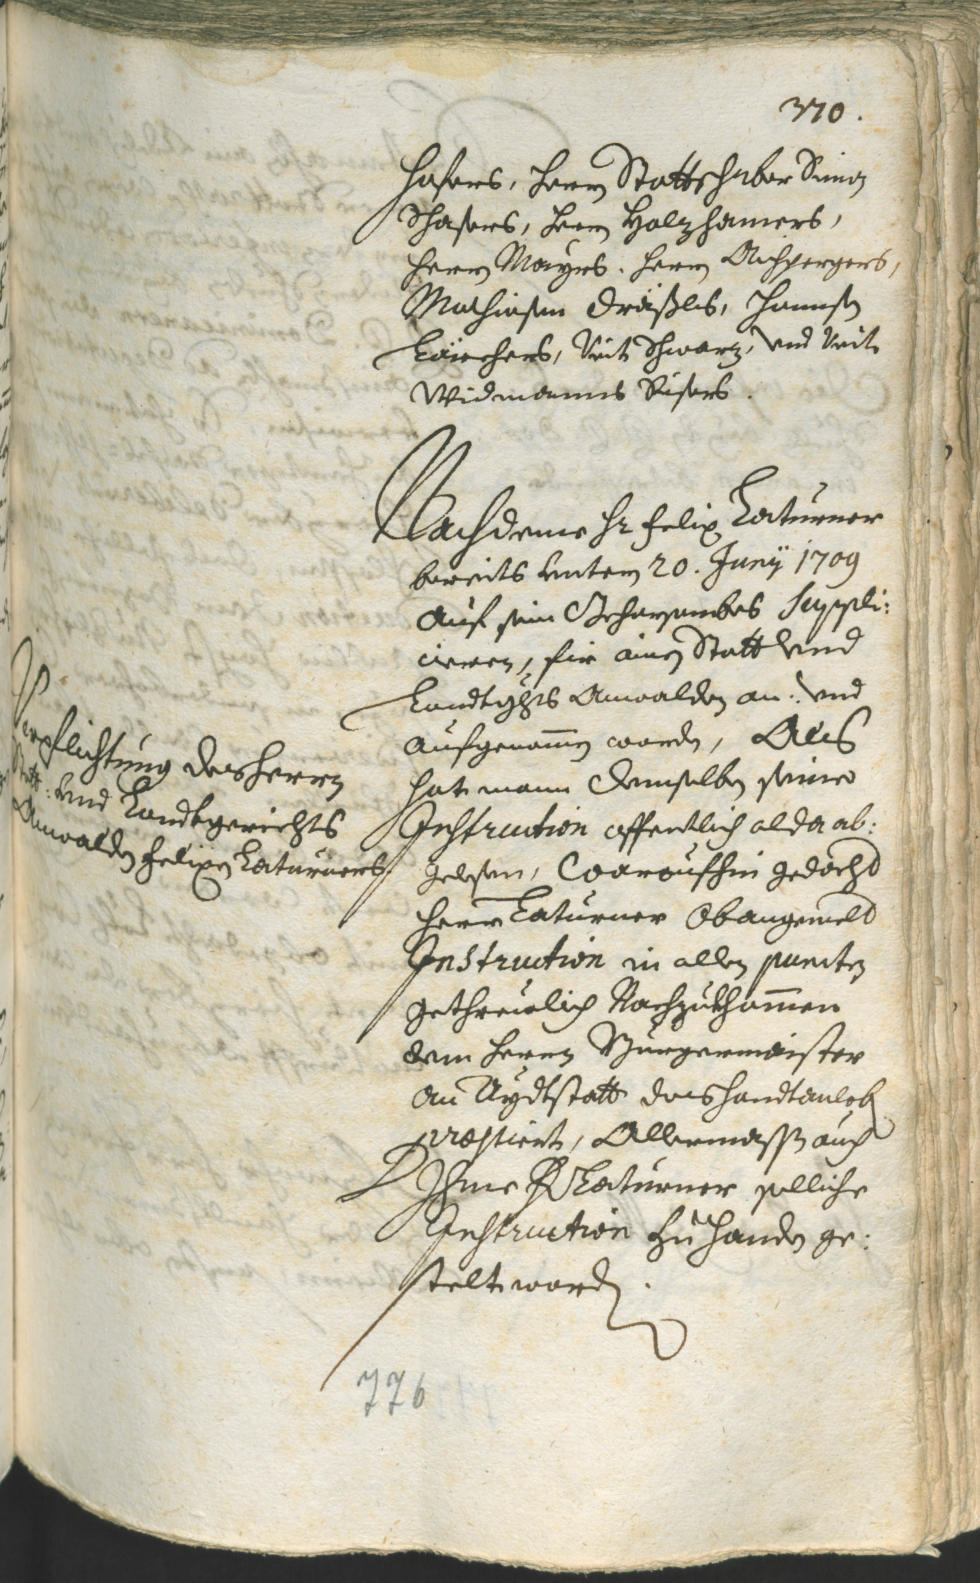 370.
Hofers, Herrn Statthaber Simon
Schafers, Herrn Holzhamers,
Herrn Mayrs. Herrn Aichpergers,
Mathiasen Dräxls, Hannsen
Lärchers, Veit Schwarz, und Veit
Widmanns Risers.
Nachdeme Hr Felix Laturner
bereits untern 20. Junÿ 1709
auf sein gehorsambes Suppli:
cieren, für ainen Statt und
Landtgchts Anwalden an: und
aufgenommen worden, Als
hat mann demselben seine
Instruction offentlich alda ab:
gelesen, Woraufhin gedacht
Herr Laturner obangemelt
Instruction in allen puncten
gethreulich Nachzukhommen
dem Herrn Burgermaister
an Aydtstatt das Handtanlob
præstiert, Allermassen auch
Ihme Hr Laturner solliche
Instruction zu Handen ge:
stelt worden.
Verpflichtung des Herrn
Statt: und Landtgerichts
Anwalden Felixen Laturners.
776